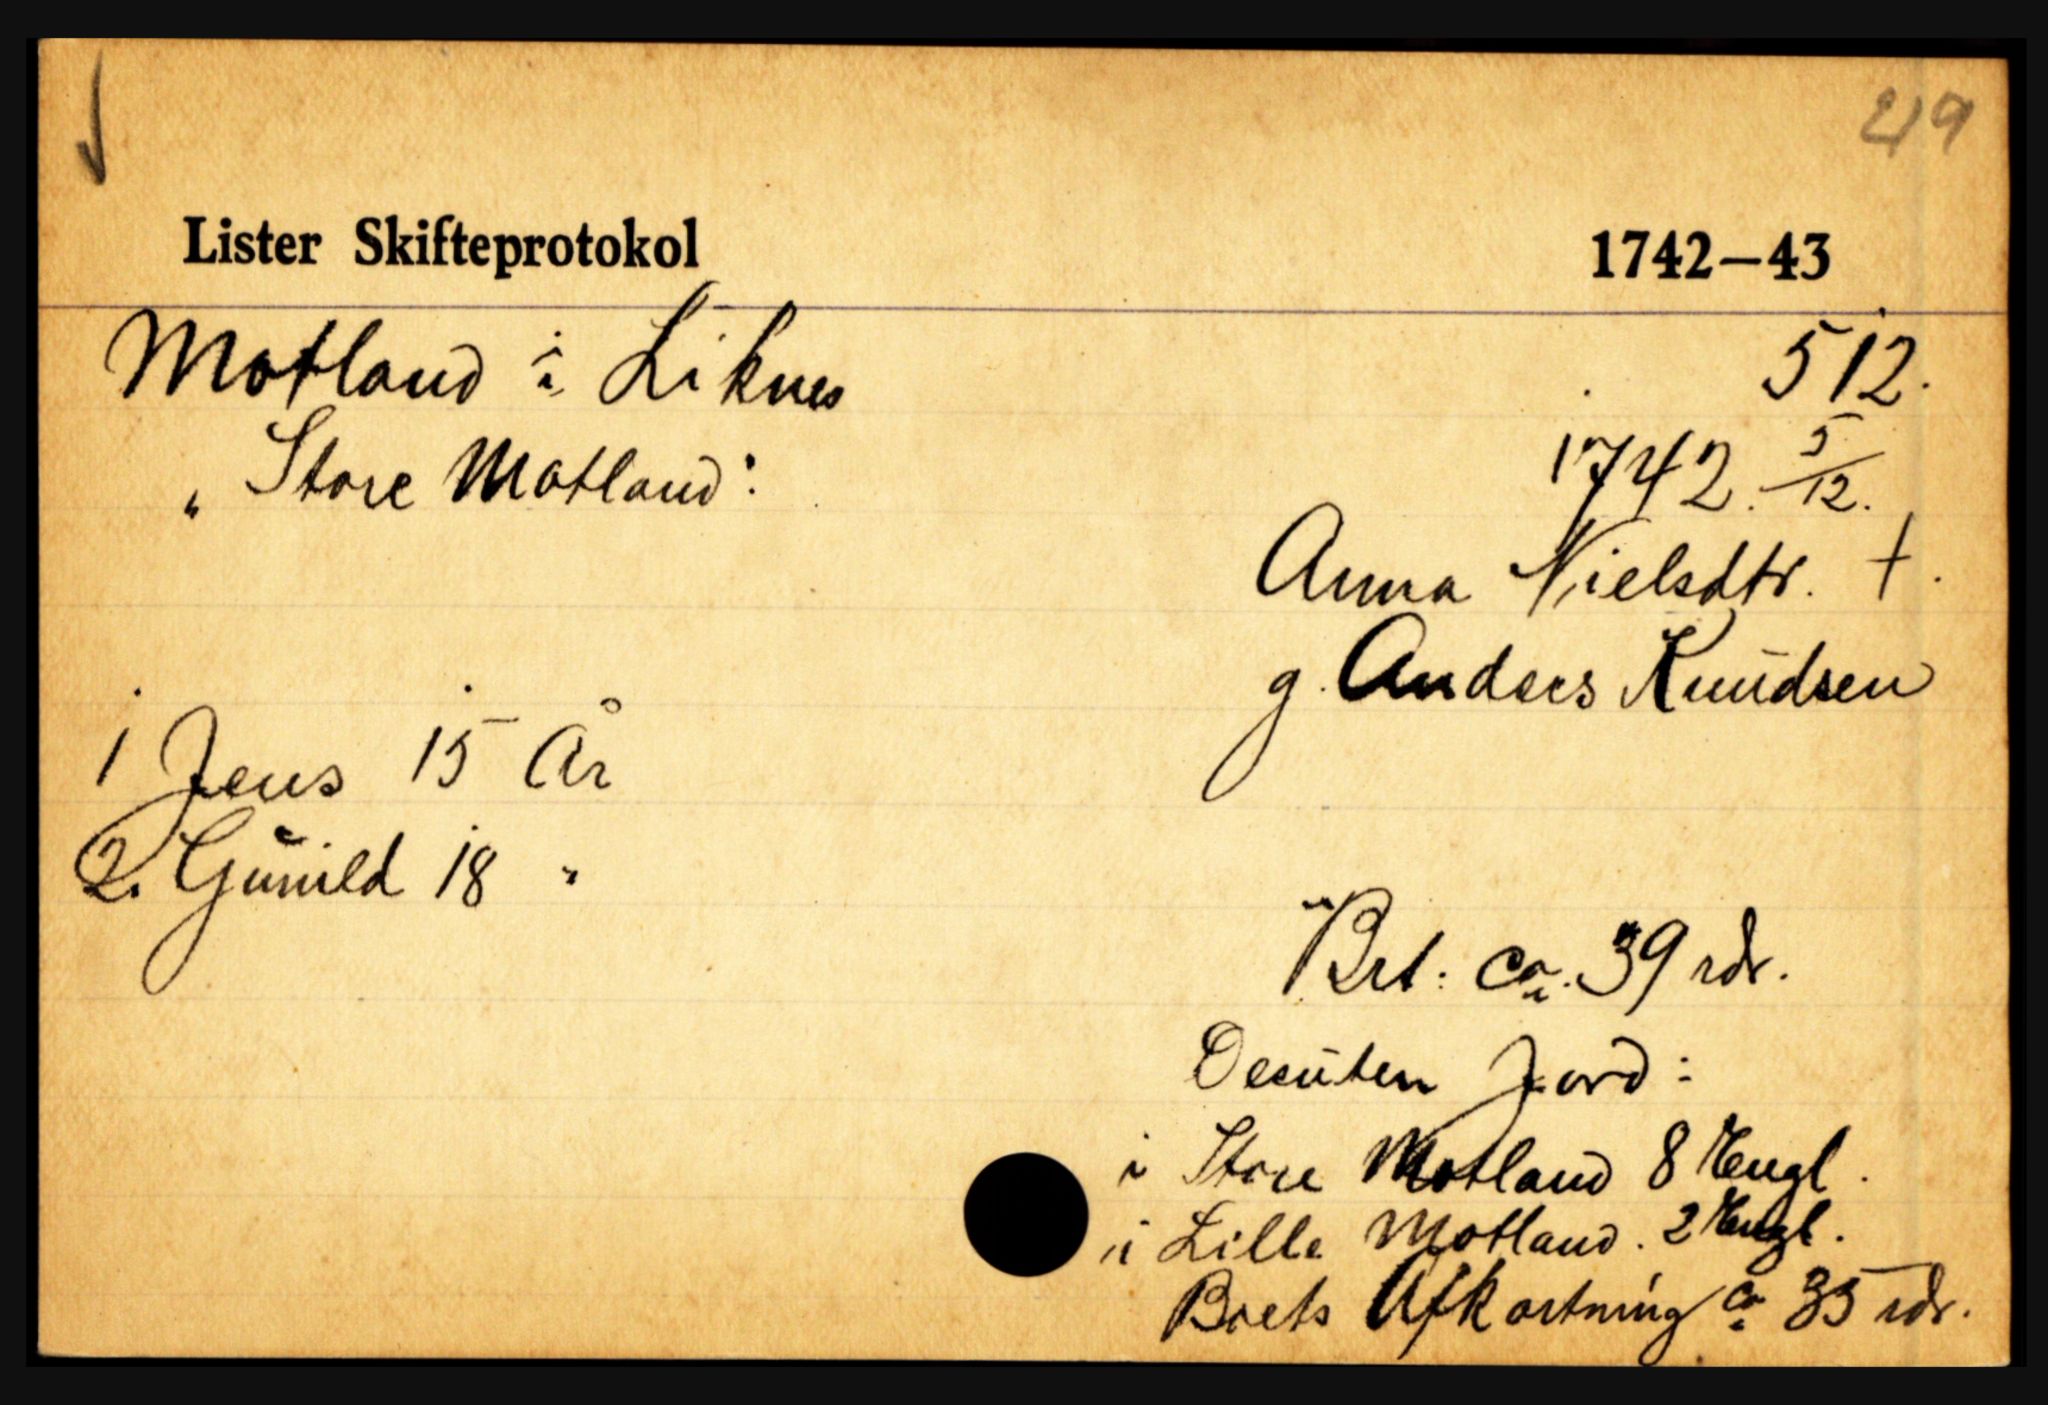 219
Lister Skifteprotokol 1742–43
Motland i Liknes 512.
" Store Motland: 1742. 5/12.
Anna Nielsdtr. †.
g. Anders Knudsen
1 Jens 15 År
2. Gunild 18 "
Brt: ca. 39 rdr.
Desuten Jord:
i Store Motland 8 Engl.
i Lille Motland. 2 Engl.
Boets Afkortning ca 35 rdr.